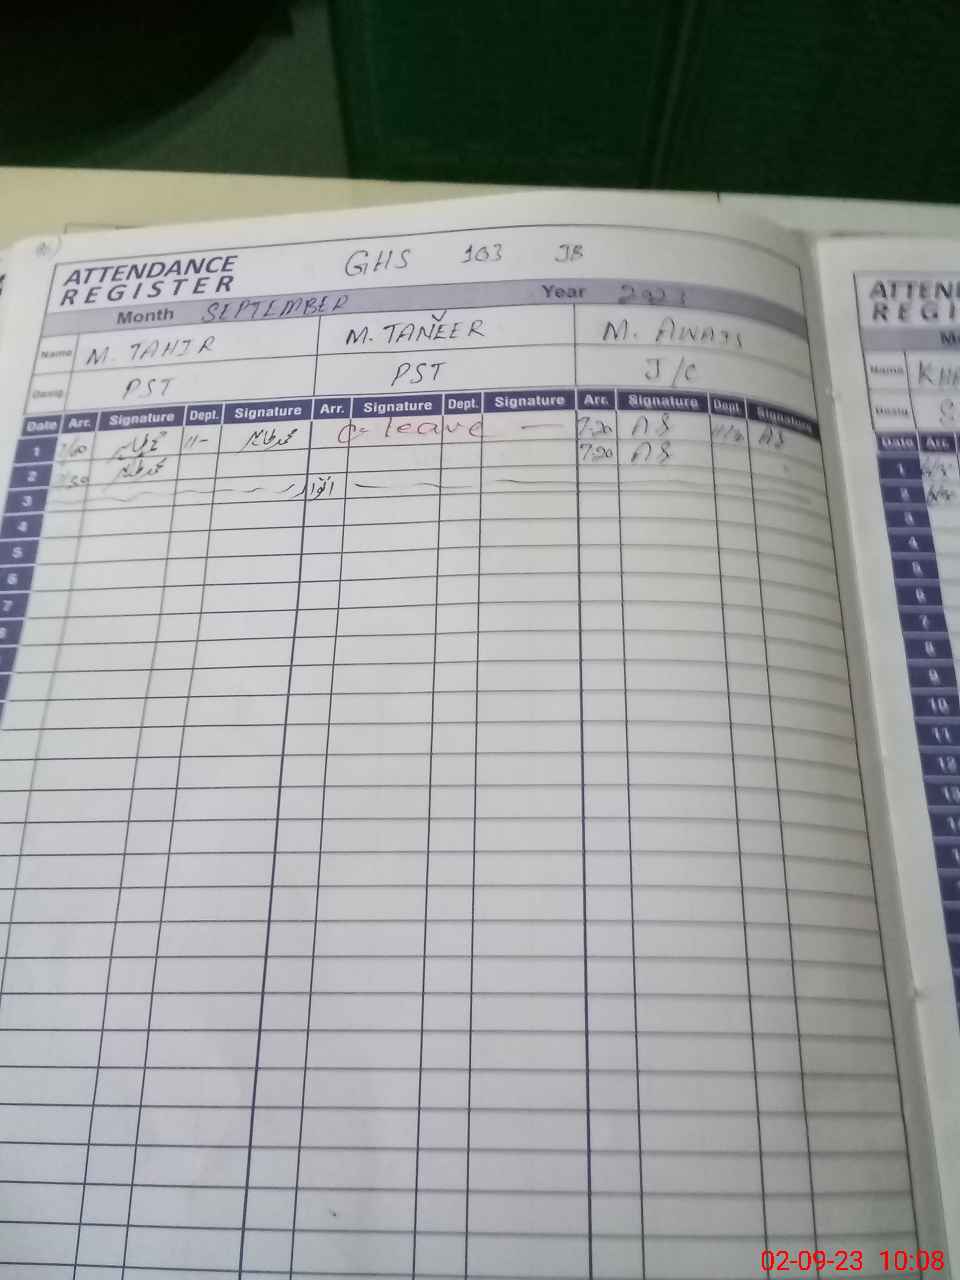 ATTENDANCE REGISTER
GHS 103 JB
Month SEPTEMBER Year 2023
Name M. TAHIR M. TANVEER M. AWAIS
Desig. PST PST J/C
Date Arr. Signature Dept. Signature Arr. Signature Dept. Signature Arr. Signature Dept. Signature
1 محمد طاہر 11- محمد طاہر C- leave — 7.20 AS AS
2 محمد طاہر 7.20 AS
3 اتوار
4
5
6
7
8
ATTEN
REGI
Name
Desig
Date Arr.
1
2
3
4
5
6
7
8
9
10
11
12
02-09-23 10:08